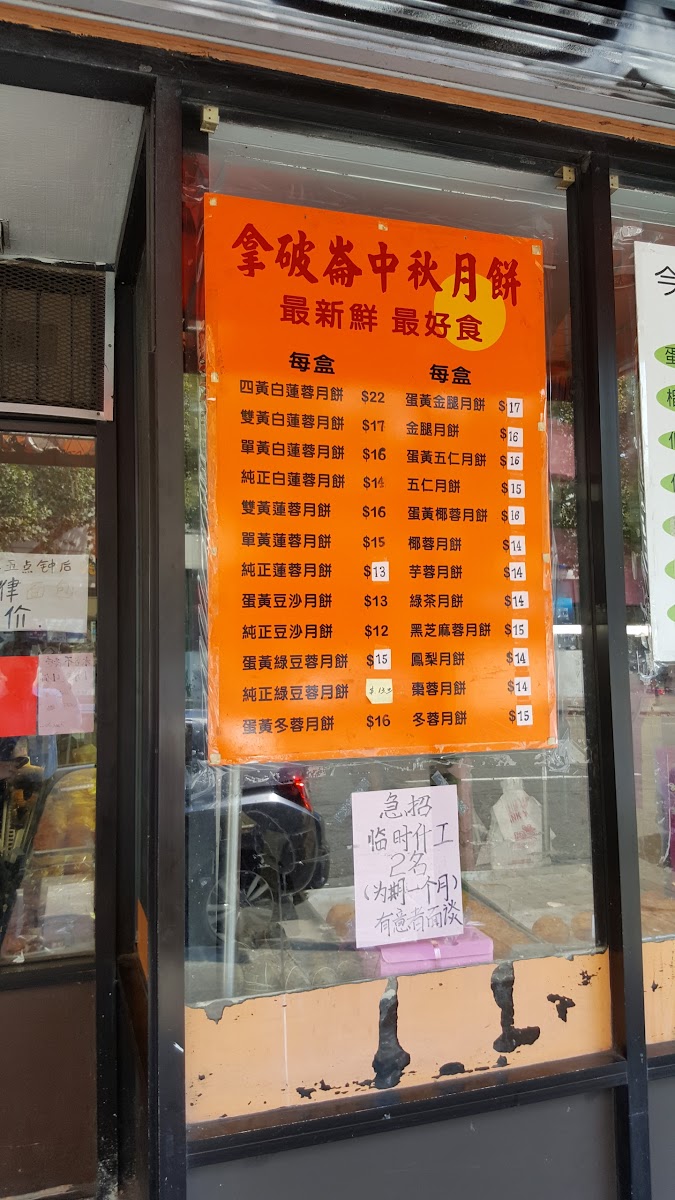 拿破崙中秋月餅
最新鮮 最好食
每盒
四黃白蓮蓉月餅 $22
雙黃白蓮蓉月餅 $17
單黃白蓮蓉月餅 $16
純正白蓮蓉月餅 $14
雙黃蓮蓉月餅 $16
單黃蓮蓉月餅 $15
純正蓮蓉月餅 $13
蛋黃豆沙月餅 $13
純正豆沙月餅 $12
蛋黃綠豆蓉月餅 $15
純正綠豆蓉月餅
蛋黃冬蓉月餅 $16
每盒
蛋黃金腿月餅 $17
金腿月餅 $16
蛋黃五仁月餅 $16
五仁月餅 $15
蛋黃椰蓉月餅 $16
椰蓉月餅 $14
芋蓉月餅 $14
綠茶月餅 $14
黑芝麻蓉月餅 $15
鳳梨月餅 $14
棗蓉月餅 $14
冬蓉月餅 $15
急招
临时什工
2名
(为期一个月)
有意者面谈
五点钟后
律
价.
今
蛋